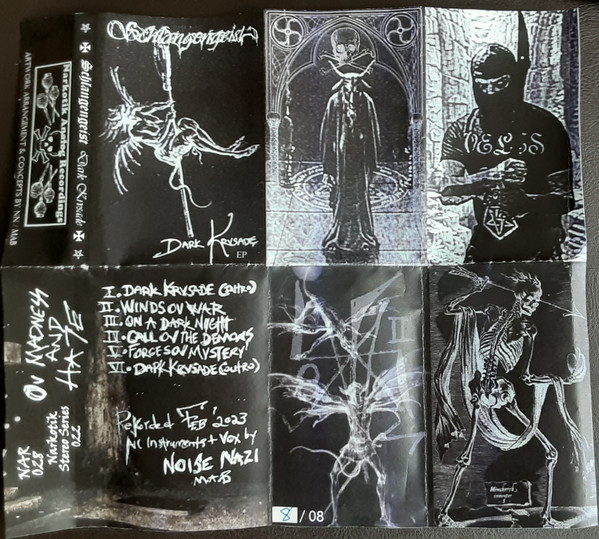 Narkotik Analog Recordings
ARTWORK ARRANGEMENT & CONCEPTS BY NN / MAB
Schlangengeist Dark Krusade
Schlangengeist
DARK KRUSADE
EP
OV MADNESS
AND
HATE
NAR
028
Narkotik
Stereo Series
022
I. DARK KRUSADE (INTRO)
II. WINDS OV WAR
III. ON A DARK NIGHT
IV. CALL OV THE DEMONS
V. FORCES OV MYSTERY
VI. DARK KRUSADE (OUTRO)
Rekorded
FEB 2023
All Instruments + Vox by
NOISE NAZI
MAB
8 / 08